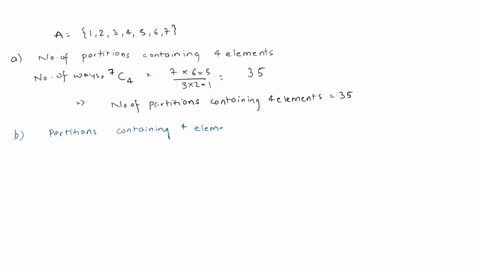 A = {1,2,3,4,5,6,7}
a) No.of partitions containing 4 elements
No.of ways, ⁷C₄ = 7×6×5 / 3×2×1 = 35
⇒ No.of partitions containing 4 elements = 35
b) Partitions containing 4 eleme